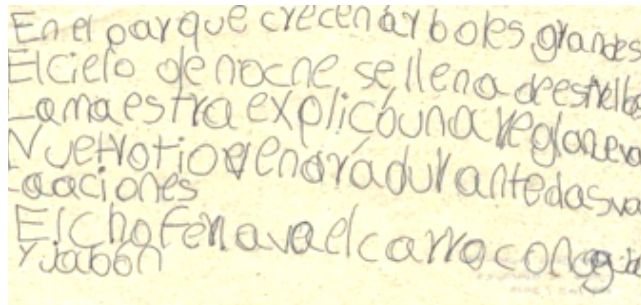 En el parque crecen árboles grandes
El cielo de nocne se llena de estrellas
La maestra explicó una regla nueva
Nuetro tio vendrá durante las va
caciones
El chofer lava el carro con agua
y jabón